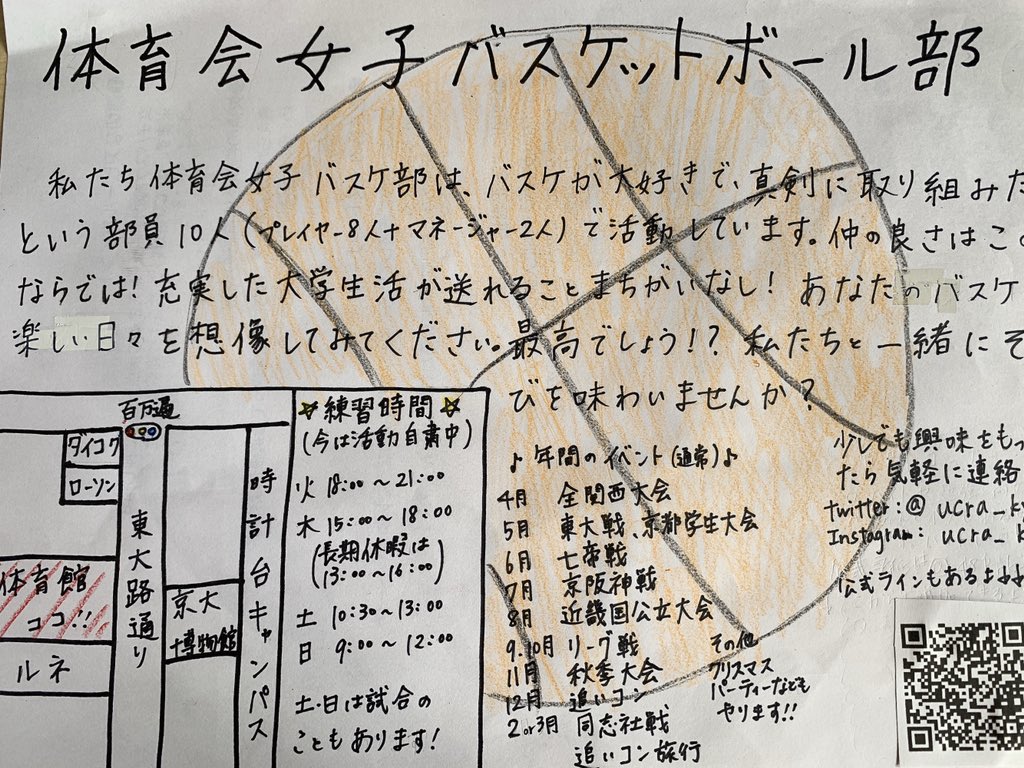 体育会女子バスケットボール部
私たち体育会女子バスケ部は、バスケが大好きで、真剣に取り組みた
という部員10人(プレイヤー8人+マネージャー2人)で活動しています。仲の良さはこの
ならでは!充実した大学生活が送れることまちがいなし!あなたのバスケ
楽しい日々を想像してみてください。最高でしょう!?私たちと一緒にそ
びを味わいませんか?
百万遍
ダイコク
ローソン
東大路通り
体育館
ココ!!
ルネ
京大
博物館
時計台キャンパス
練習時間
(今は活動自粛中)
火 18:00~21:00
木 15:00~18:00
(長期休暇は
13:00~16:00)
土 10:30~13:00
日 9:00~12:00
土・日は試合の
こともあります!
♪年間のイベント(通常)♪
4月 全関西大会
5月 東大戦、京都学生大会
6月 七帝戦
7月 京阪神戦
8月 近畿国公立大会
9.10月 リーグ戦
11月 秋季大会
12月 追いコン
2or3月 同志社戦
追いコン旅行
その他
クリスマス
パーティーなども
やります!!
少しでも興味をもっ
たら気軽に連絡
twitter:@ucra_k
Instagram: ucra_k
公式ラインもあるよ